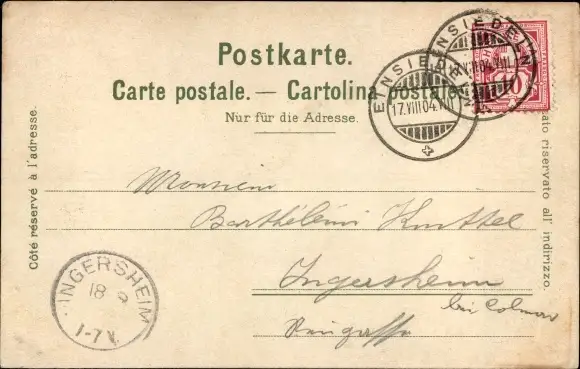 Postkarte.
Carte postale. — Cartolina postale.
Nur für die Adresse.
Côté réservé à l'adresse.
riservato all' indirizzo.
EINSIEDELN
17.VIII.04.VIII
10
Monsieur
Barthélemi Knittel
Ingersheim
bei Colmar
INGERSHEIM
18 8
1-7 V.